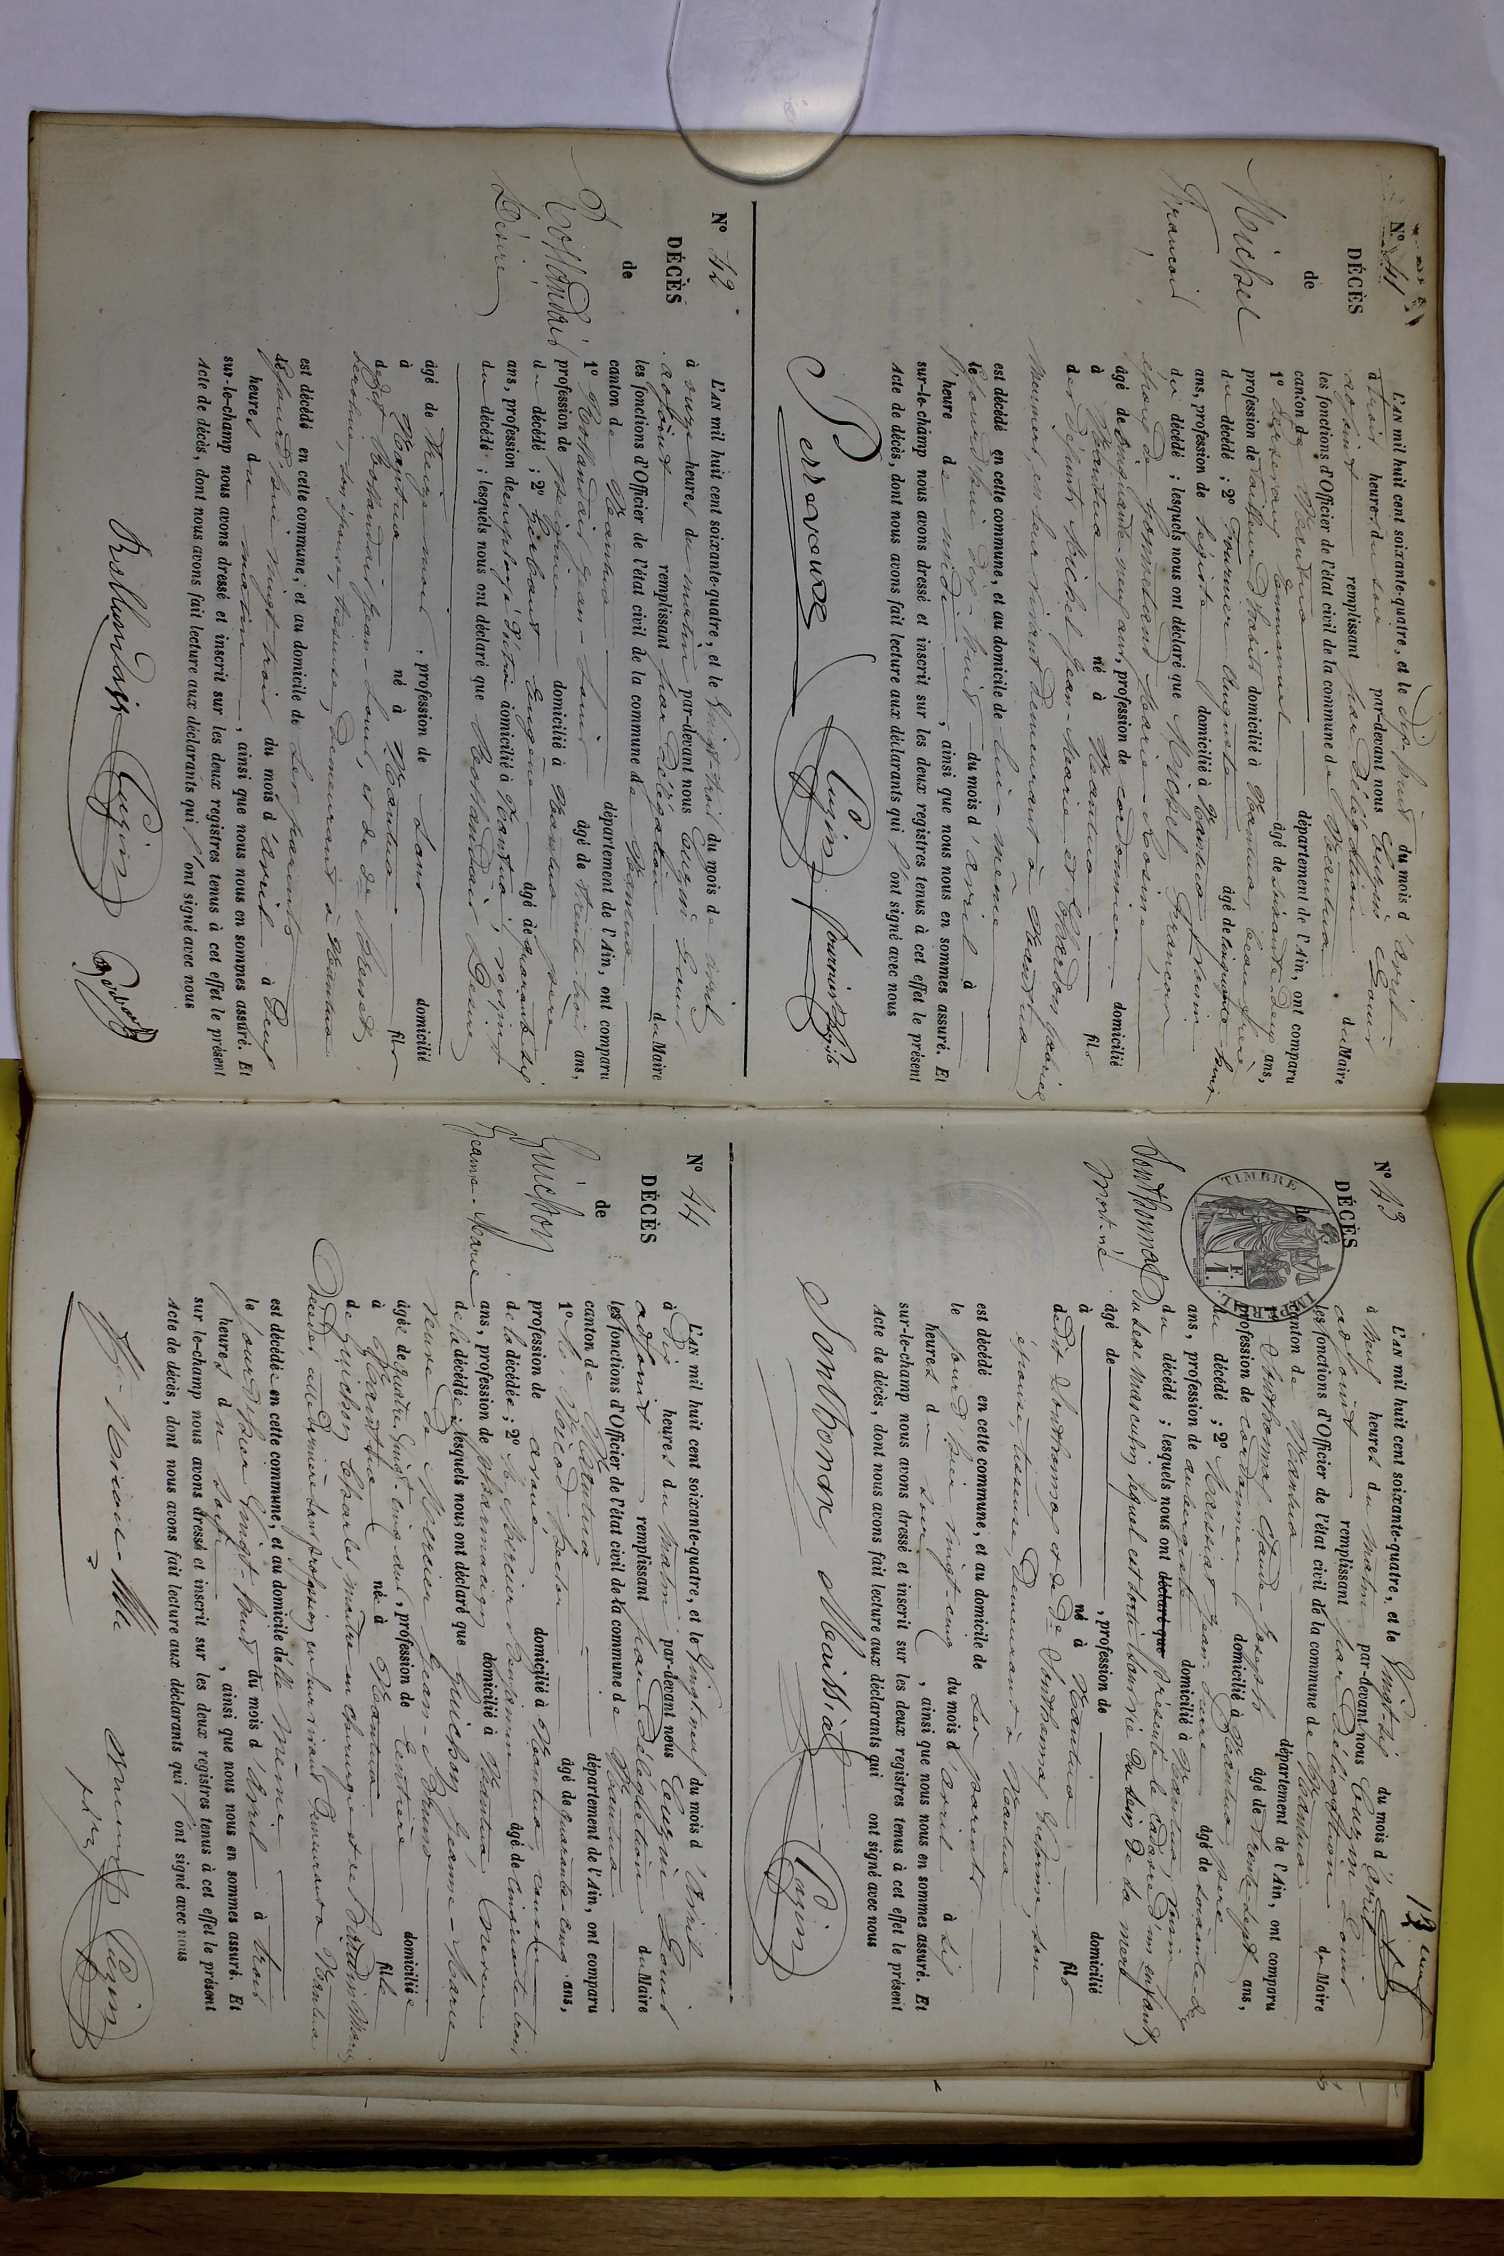 N° 41
DÉCÈS
de
Michel
François
L'AN mil huit cent soixante-quatre, et le dix huit du mois d'avril
à trois heures du soir par-devant nous Cugni Louis
adjoint remplissant par délégation du Maire
les fonctions d'Officier de l'état civil de la commune de Nantua
canton de Nantua département de l'Ain, ont comparu
1° Emmanuel âgé de soixante deux ans,
profession de tailleur d'habits domicilié à Nantua, beau frère
du décédé ; 2° Fournier Auguste âgé de cinquante huit
ans, profession de légiste domicilié à Nantua voisin
du décédé ; lesquels nous ont déclaré que Michel François
époux de Marie-Rosine
âgé de soixante-neuf ans, profession de cordonnier domicilié
à Nantua né à Nantua fils
des défunts Michel Jean-Marie et
en leur vivant demeurant à Nantua
est décédé en cette commune, et au domicile de lui-même
le jourd'hui dix-huit du mois d'avril à
heure de midi, ainsi que nous nous en sommes assuré. Et
sur-le-champ nous avons dressé et inscrit sur les deux registres tenus à cet effet le présent
Acte de décès, dont nous avons fait lecture aux déclarants qui l'ont signé avec nous
N° 42
DÉCÈS
de
Rollandais
Désiré
L'AN mil huit cent soixante-quatre, et le vingt-trois du mois de avril
à onze heures du matin par-devant nous Cugni Louis
adjoint remplissant par délégation du Maire
les fonctions d'Officier de l'état civil de la commune de Nantua
canton de Nantua département de l'Ain, ont comparu
1° Rollandais Jean-Louis âgé de trente trois ans,
profession de peignier domicilié à Nantua père
du décédé ; 2° Eugène âgé de quarante six
ans, profession de employé d'octroi domicilié à Nantua, voisin
du décédé ; lesquels nous ont déclaré que Rollandais Désiré
âgé de treize mois, profession de sans domicilié
à Nantua né à Nantua fils
de dit Rollandais Jean-Louis, et de
son épouse, tisseuse, demeurant à Nantua
est décédé en cette commune, et au domicile de ses parents
le jourd'hui vingt trois du mois d'avril à neuf
heures du matin, ainsi que nous nous en sommes assuré. Et
sur-le-champ nous avons dressé et inscrit sur les deux registres tenus à cet effet le présent
Acte de décès, dont nous avons fait lecture aux déclarants qui l'ont signé avec nous
N° 43
DÉCÈS
de
TIMBRE
1 F.
Sonthonnas
Mort-né
L'AN mil huit cent soixante-quatre, et le vingt-six du mois d'avril
à neuf heures du matin par-devant nous Cugni Louis
adjoint remplissant par délégation du Maire
les fonctions d'Officier de l'état civil de la commune de Nantua
canton de Nantua département de l'Ain, ont comparu
1° Sonthonnas Claude-Joseph âgé de trente-sept ans,
profession de cordonnier domicilié à Nantua, père
du décédé ; 2° Maissiat Jean âgé de soixante-
ans, profession de aubergiste domicilié à Nantua, voisin
du décédé ; lesquels nous ont déclaré que présenté le cadavre d'un enfant
du sexe masculin lequel est sorti sans vie du sein de sa mère
âgé de , profession de domicilié
à né à Nantua fils
de dit Sonthonnas et de
épouse, tisseuse, demeurant à Nantua
est décédé en cette commune, et au domicile de ses parents
le jourd'hui vingt-cinq du mois d'avril à six
heures du , ainsi que nous nous en sommes assuré. Et
sur-le-champ nous avons dressé et inscrit sur les deux registres tenus à cet effet le présent
Acte de décès, dont nous avons fait lecture aux déclarants qui ont signé avec nous
Sonthonnas Maissiat
N° 44
DÉCÈS
de
Guichon
Jeanne-Marie
L'AN mil huit cent soixante-quatre, et le vingt-neuf du mois d'avril
à dix heures du matin par-devant nous Cugni Louis
adjoint remplissant par délégation du Maire
les fonctions d'Officier de l'état civil de la commune de Nantua
canton de Nantua département de l'Ain, ont comparu
1° M. Hector âgé de quarante-cinq ans,
profession de avoué domicilié à Nantua, cousin
de la décédée ; 2° M. Mercier Benjamin âgé de cinquante-trois
ans, profession de pharmacien domicilié à Nantua, neveu
de la décédée ; lesquels nous ont déclaré que Guichon Jeanne-Marie
veuve de Mercier Jean-
âgée de quatre vingt-cinq ans, profession de rentière domiciliée
à Nantua née à Nantua fille
de Guichon Charles, maître en chirurgie et de
décédés, cette dernière sans profession, en leur vivant demeurant à Nantua
est décédée en cette commune, et au domicile d'elle même
le jourd'hier vingt-huit du mois d'avril à trois
heures du soir, ainsi que nous nous en sommes assuré. Et
sur-le-champ nous avons dressé et inscrit sur les deux registres tenus à cet effet le présent
Acte de décès, dont nous avons fait lecture aux déclarants qui l'ont signé avec nous